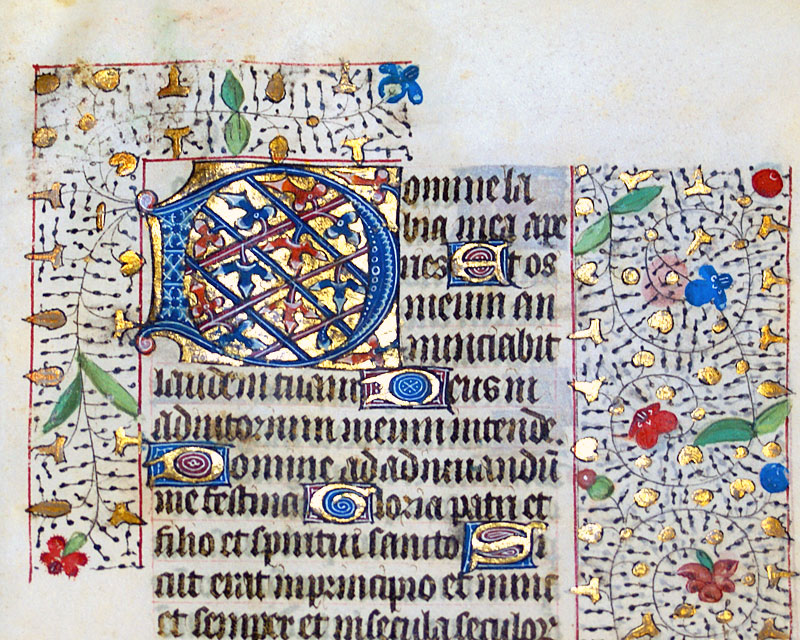 Domine la
bia mea ape
ries Et os
meum an
nunciabit
laudem tuam Deus in
adiutorium meum intende.
Domine ad adiuuandū
me festina Gloria patri et
filio et spiritui sancto Si
cut erat in principio et nunc
et semper et in secula seculor